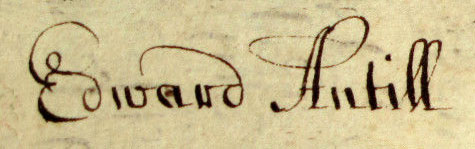 Edward Antill